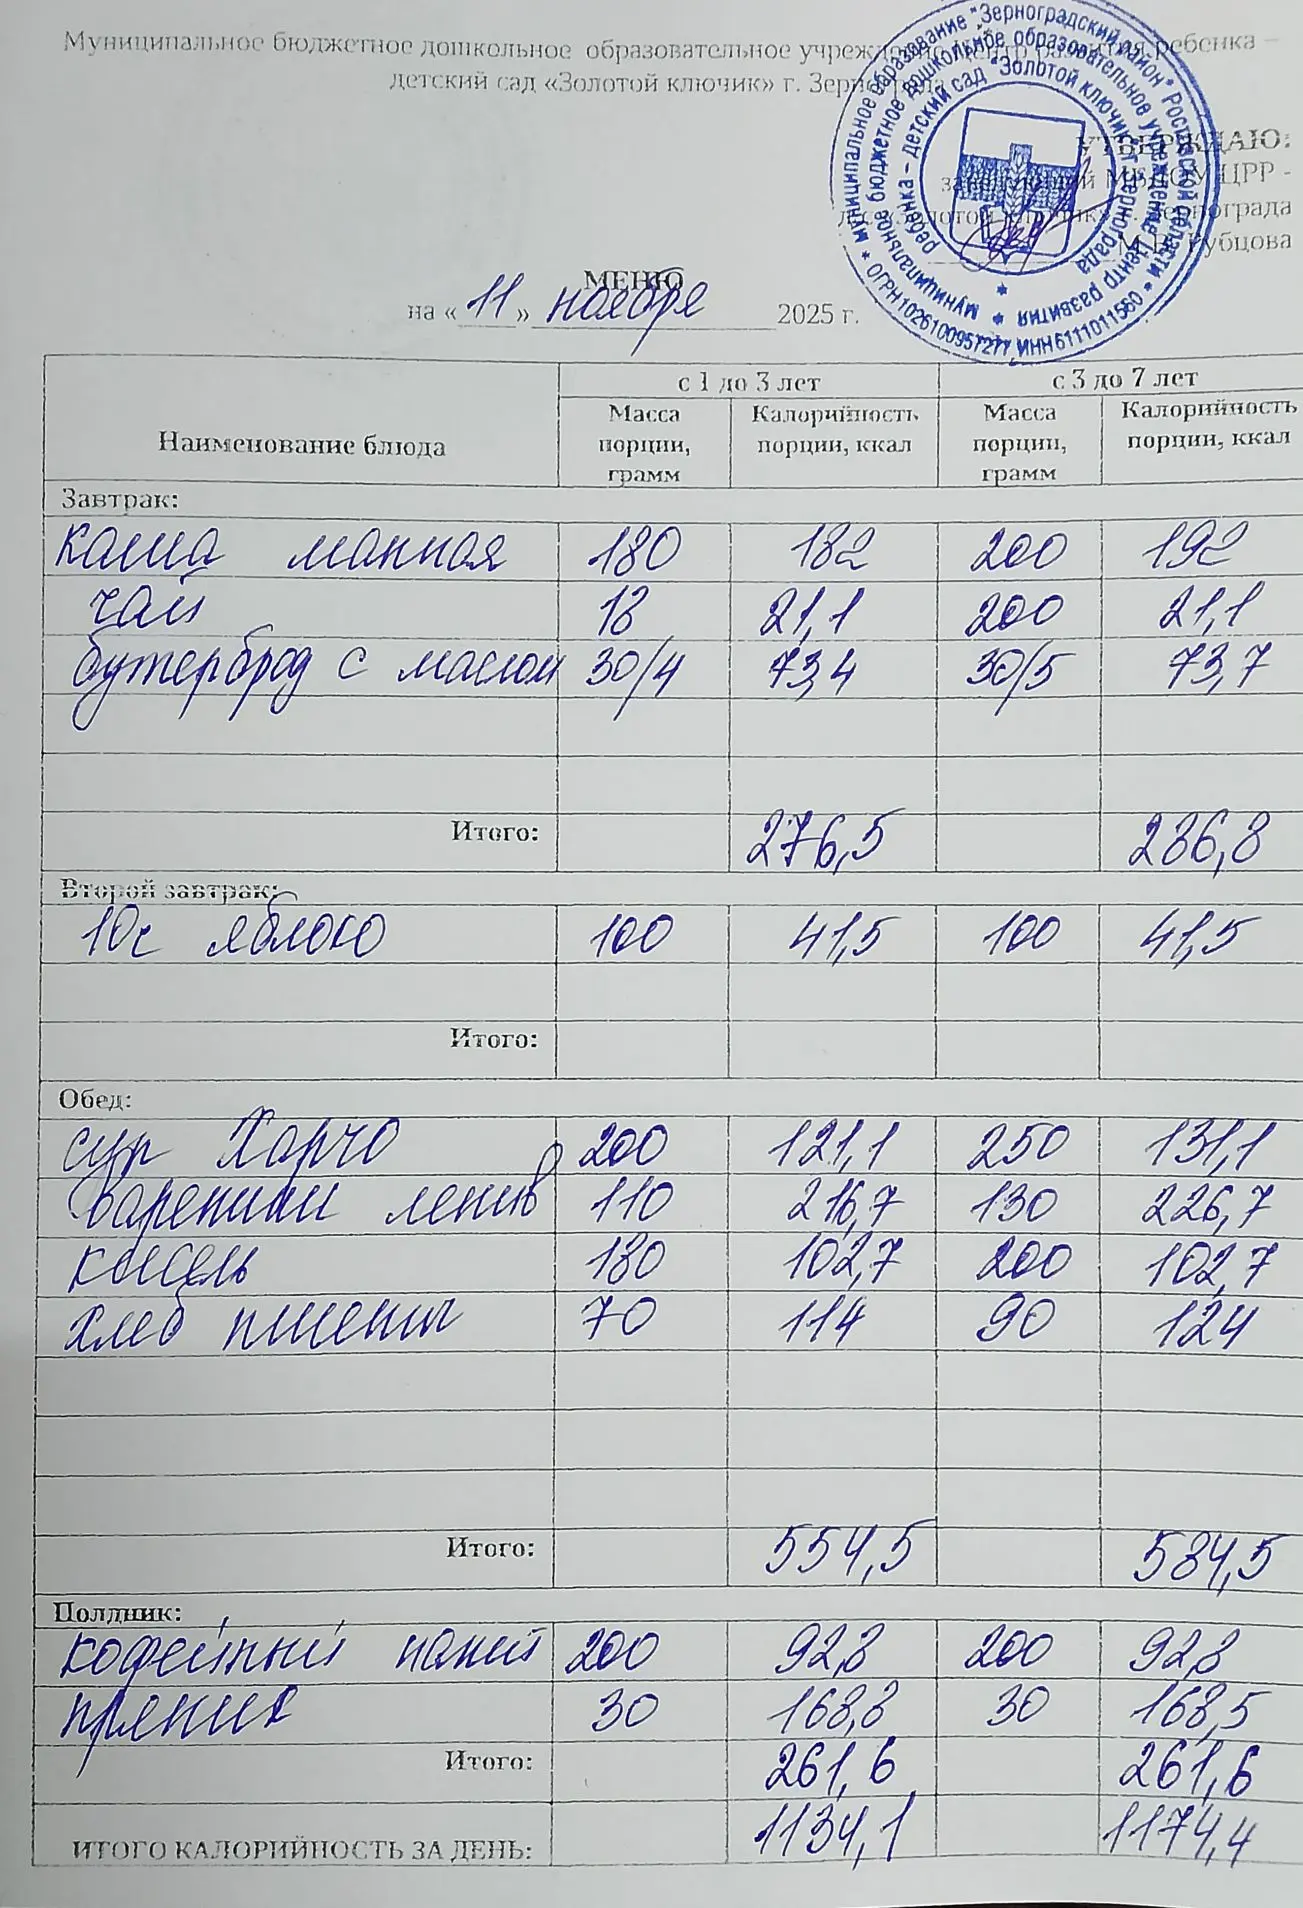 Муниципальное бюджетное дошкольное образовательное учреждение центр развития ребенка –
детский сад «Золотой ключик» г. Зернограда
муниципальное образование "Зерноградский район" Ростовской области
ОГРН 1026100957277 ИНН 6111011560
муниципальное бюджетное дошкольное образовательное учреждение центр развития
ребенка – детский сад "Золотой ключик" г. Зернограда
УТВЕРЖДАЮ:
заведующий МБДОУ ЦРР -
д/с «Золотой ключик» г. Зернограда
Рубцова
МЕНЮ
на « 11 » ноября 2025 г.
Наименование блюда с 1 до 3 лет с 3 до 7 лет
Масса порции, грамм Калорийность порции, ккал Масса порции, грамм Калорийность порции, ккал
Завтрак:
каша манная 180 182 200 192
чай 18 21,1 200 21,1
бутерброд с маслом 30/4 73,4 30/5 73,7
Итого: 276,5 286,8
Второй завтрак:
яблоко 100 41,5 100 41,5
Итого:
Обед:
суп Харчо 200 121,1 250 131,1
вареники ленив 110 216,7 130 226,7
кисель 180 102,7 200 102,7
хлеб пшенич 70 114 90 124
Итого: 554,5 584,5
Полдник:
кофейный напит 200 92,8 200 92,8
пряник 30 168,8 30 168,5
Итого: 261,6 261,6
ИТОГО КАЛОРИЙНОСТЬ ЗА ДЕНЬ: 1134,1 1174,4